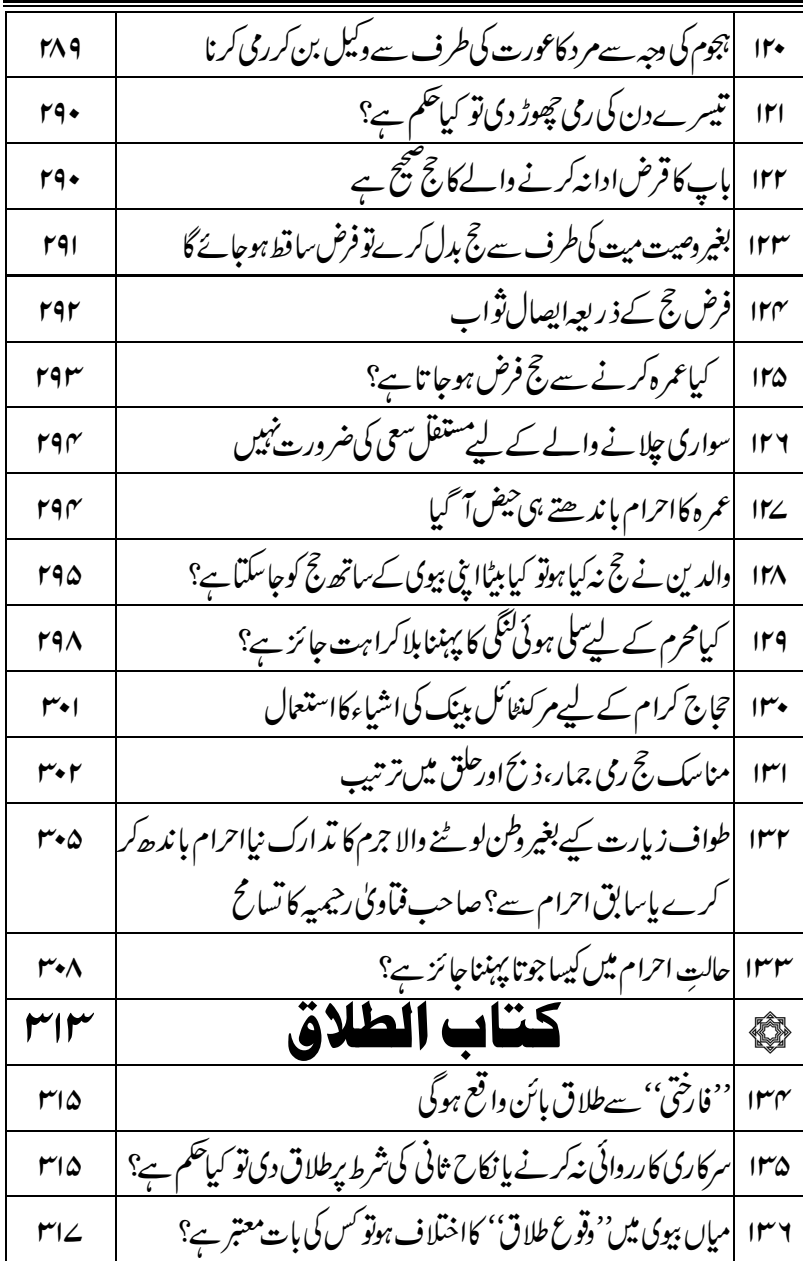 ۱۲۰ ہجوم کی وجہ سے مرد کا عورت کی طرف سے وکیل بن کر رمی کرنا ۲۸۹
۱۲۱ تیسرے دن کی رمی چھوڑ دی تو کیا حکم ہے؟ ۲۹۰
۱۲۲ باپ کا قرض ادا نہ کرنے والے کا حج صحیح ہے ۲۹۰
۱۲۳ بغیر وصیت میت کی طرف سے حج بدل کرے تو فرض ساقط ہو جائے گا ۲۹۱
۱۲۴ فرض حج کے ذریعہ ایصال ثواب ۲۹۲
۱۲۵ کیا عمرہ کرنے سے حج فرض ہو جاتا ہے؟ ۲۹۳
۱۲۶ سواری چلانے والے کے لیے مستقل سعی کی ضرورت نہیں ۲۹۴
۱۲۷ عمرہ کا احرام باندھتے ہی حیض آ گیا ۲۹۴
۱۲۸ والدین نے حج نہ کیا ہو تو کیا بیٹا اپنی بیوی کے ساتھ حج کو جا سکتا ہے؟ ۲۹۵
۱۲۹ کیا محرم کے لیے سلی ہوئی لنگی کا پہننا بلا کراہت جائز ہے؟ ۲۹۸
۱۳۰ حجاج کرام کے لیے مرکنٹائل بینک کی اشیاء کا استعمال ۳۰۱
۱۳۱ مناسک حج رمی جمار، ذبح اور حلق میں ترتیب ۳۰۲
۱۳۲ طواف زیارت کیے بغیر وطن لوٹنے والا جرم کا تدارک نیا احرام باندھ کر ۳۰۵
کرے یا سابق احرام سے؟ صاحب فتاویٰ رحیمیہ کا تسامح
۱۳۳ حالتِ احرام میں کیسا جوتا پہننا جائز ہے؟ ۳۰۸
کتاب الطلاق ۳۱۳
۱۳۴ ’’فارختی‘‘ سے طلاق بائن واقع ہوگی ۳۱۵
۱۳۵ سرکاری کارروائی نہ کرنے یا نکاح ثانی کی شرط پر طلاق دی تو کیا حکم ہے؟ ۳۱۵
۱۳۶ میاں بیوی میں ’’وقوع طلاق‘‘ کا اختلاف ہو تو کس کی بات معتبر ہے؟ ۳۱۷